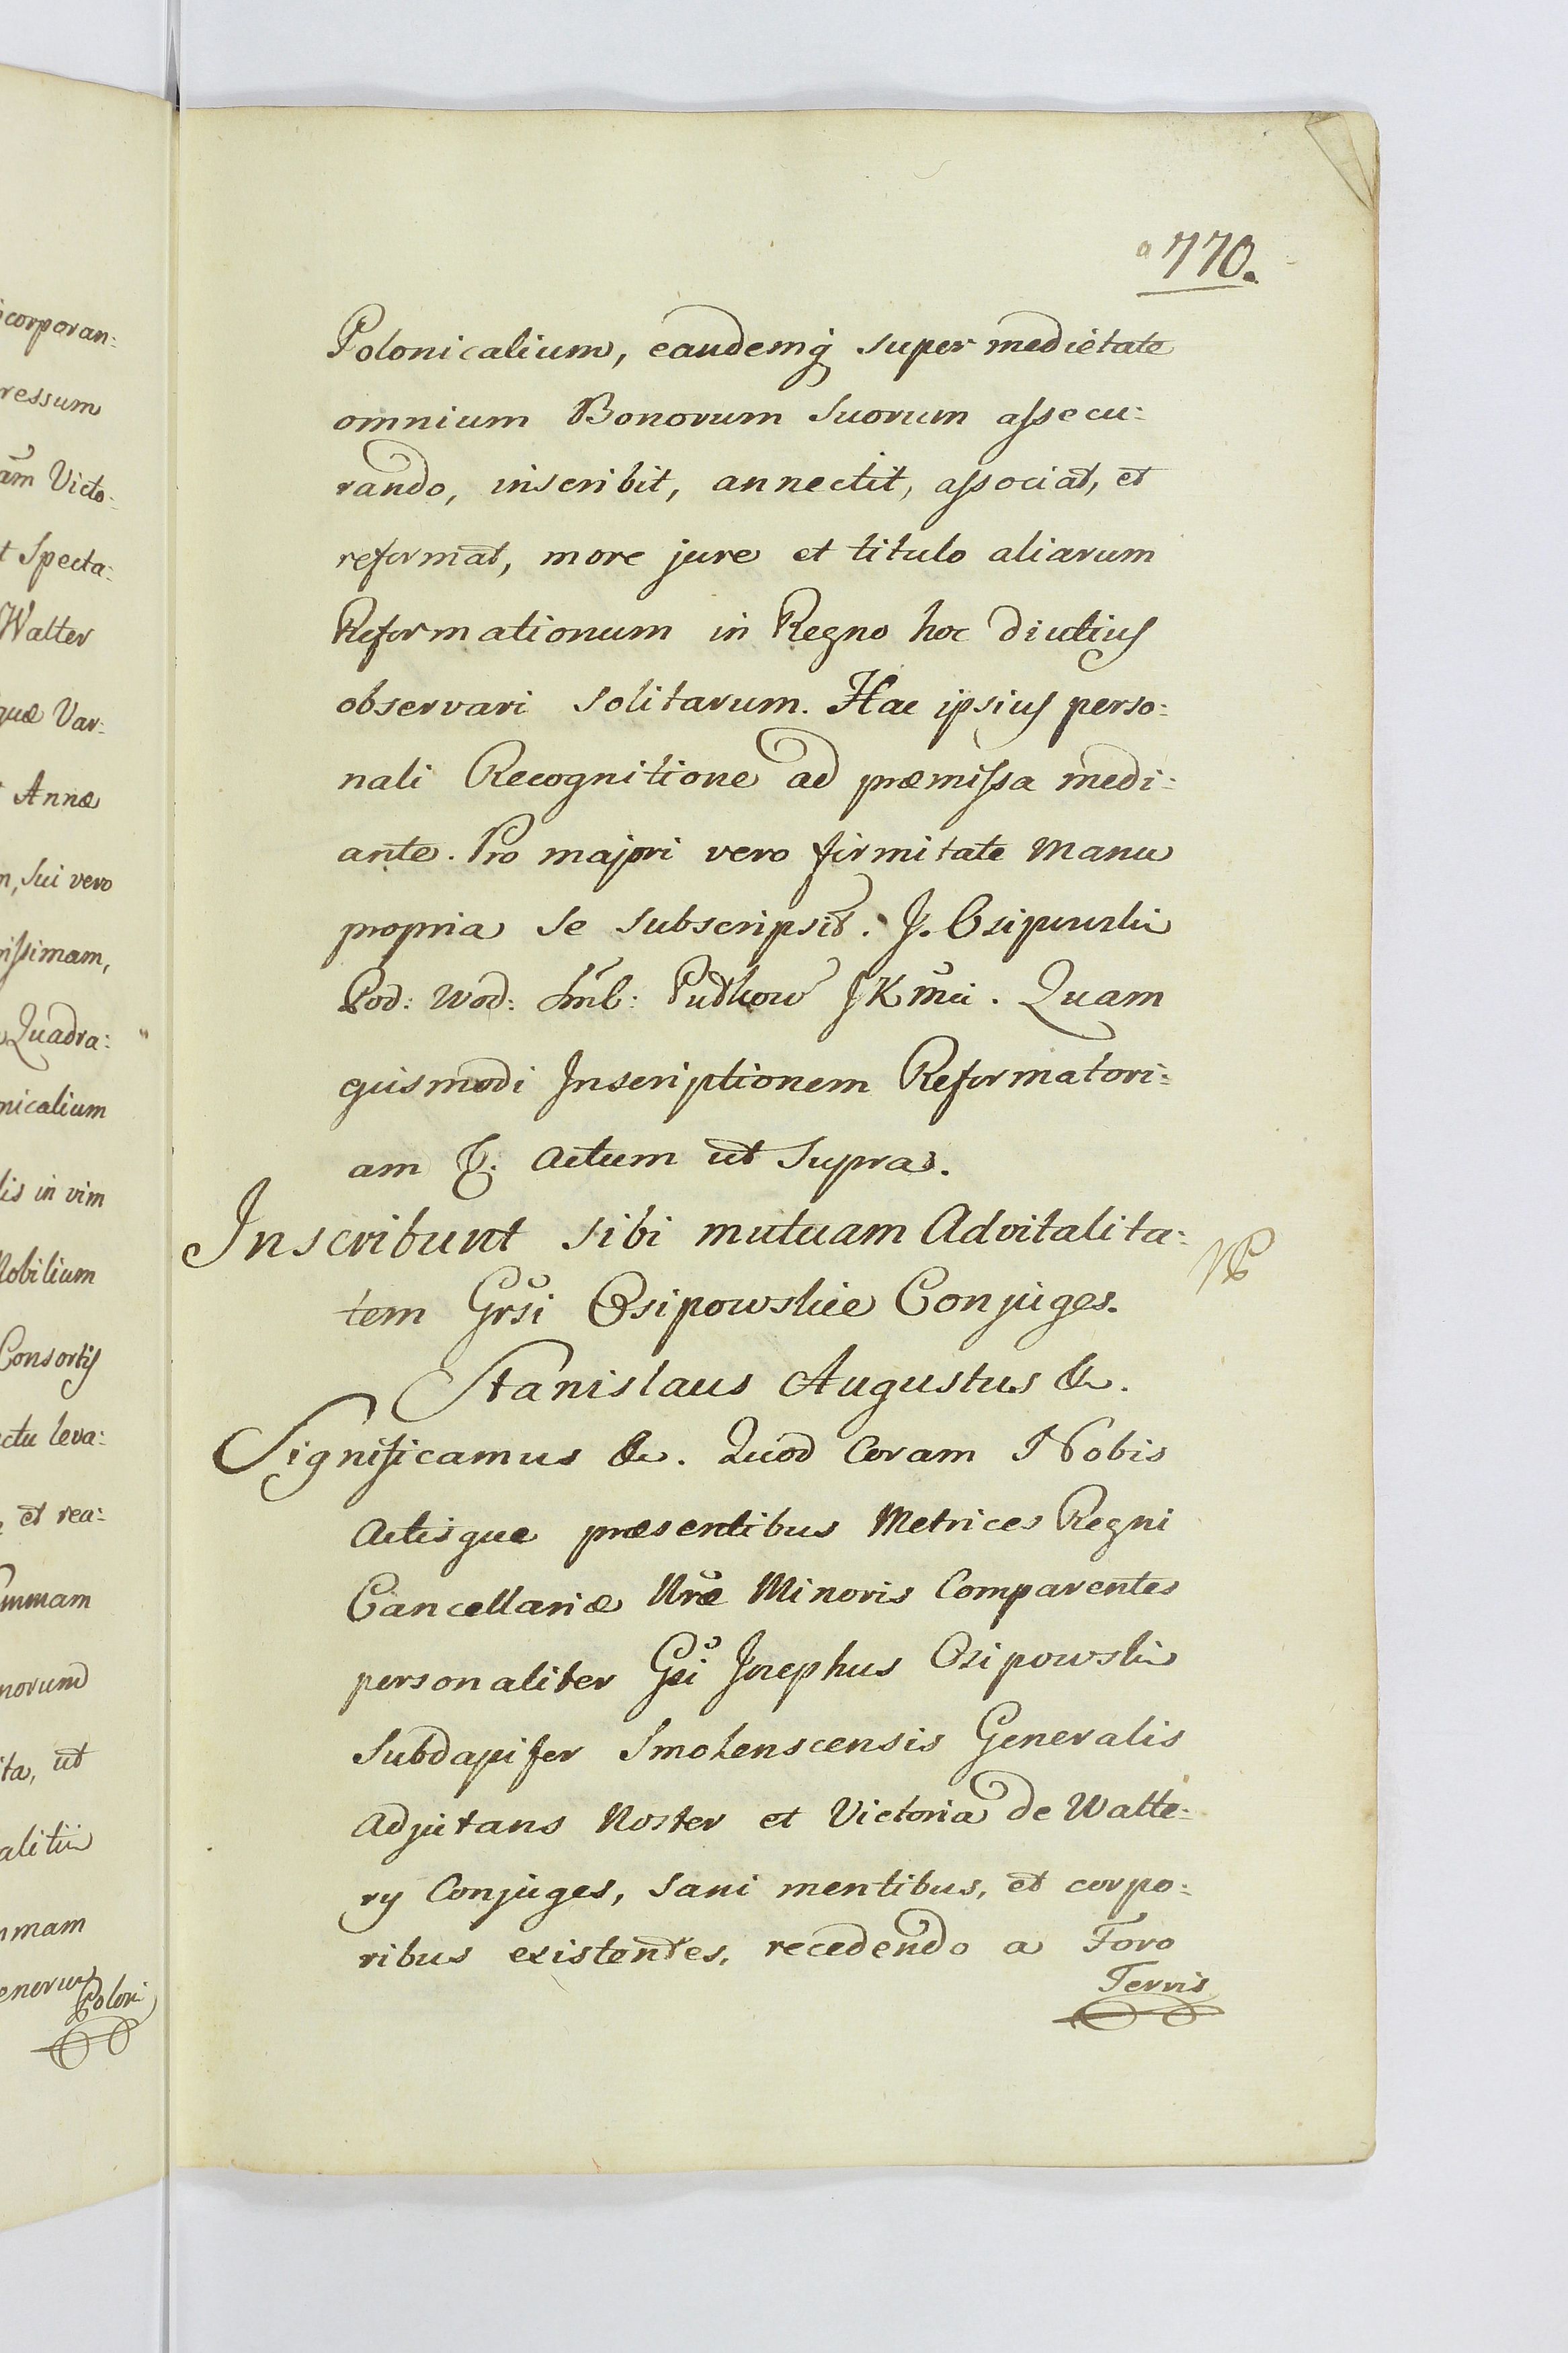 770.
Polonicalium, eandemq super medietate
omnium Bonorum Suorum assecu:
rando, inscribit, annectit, associat, et
reformat, more jure et titulo aliarum
Reformationum in Regno hoc diutius
observari solitarum. Hac ipsius perso:
nali Recognitione ad præmissa medi:
ante. Pro majori vero firmitate Manu
propria se subscripsit. J. Osipowski
Pod: Wod: Pułkow JKMci. Quam
ejusmodi Inscriptionem Reformatori:
am &. Actum ut Supra.
Inscribunt sibi mutuam Advitalita:
tem Grsi Osipowskie Conjuges.
Stanislaus Augustus &.
Significamus &. Quod Coram Nobis
Actisque præsentibus Metrices Regni
Cancellariæ Nræ Minoris Comparentes
personaliter Gsi Josephus Osipowski
Subdapifer Smolenscensis Generalis
Adjutans Noster et Victoria de Walte:
ry Conjuges, sani mentibus, et corpo:
ribus existentes, recedendo a Foro
Terris
corporan:
ressum
am Victo:
t Specta:
Walter
quæ Var:
Annæ
n, Sui vero
rissimam,
Quadra:
nicalium
lis in vim
Nobilium
Consortis
ctu leva:
et rea:
mmam
norum
ita, ut
alitii
mmam
enorum
Poloni